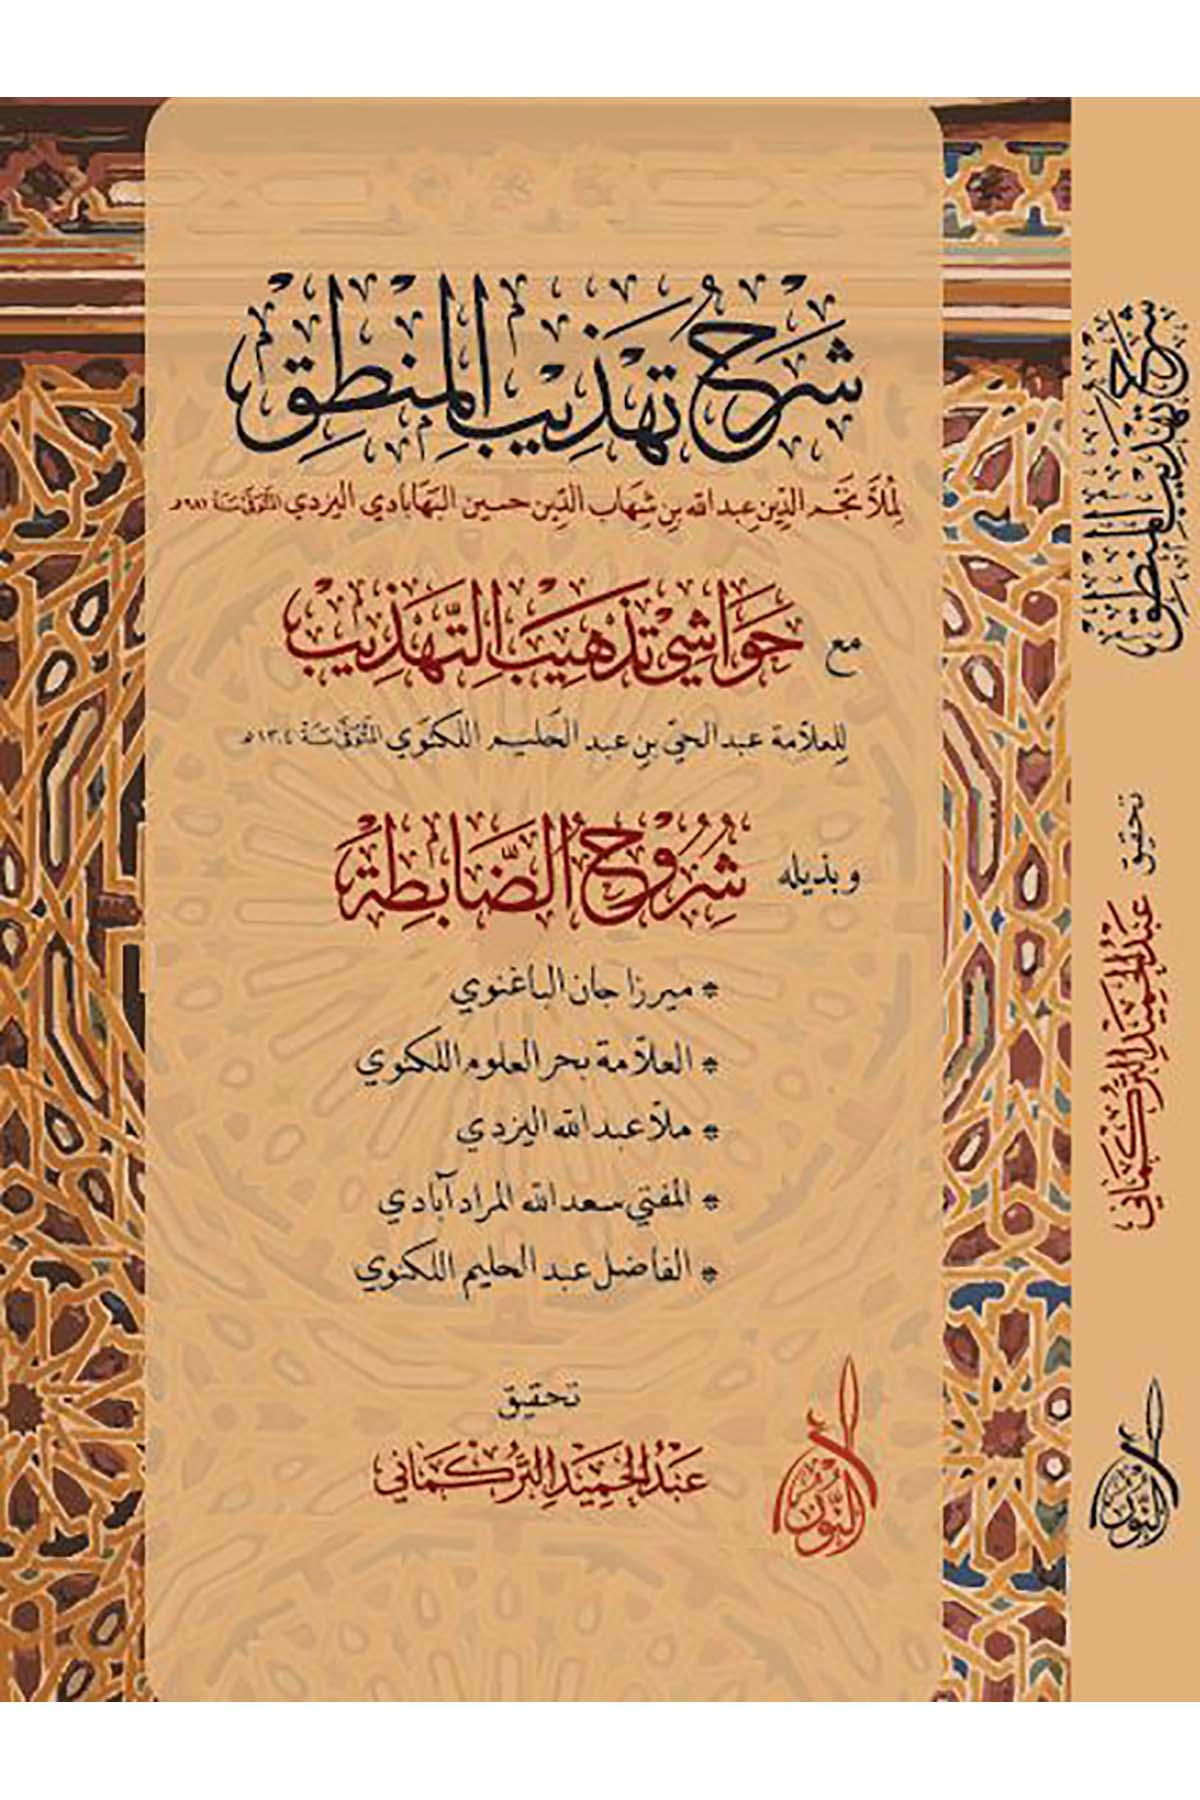 شَرْحُ تَهْذِيبِ المَنْطِقِ
لِمُلَّا نَجْم الدِّين عبد الله بن شهاب الدين حسين البهابادي اليزدي المُتَوَفَّى سَنَة ٩٨١هـ
مع حَوَاشِي تَذْهِيبِ التَّهْذِيبِ
لِلعلّامة عبد الحيّ بن عبد الحليم اللكنَوي المُتَوَفَّى سَنَة ١٣٠٤هـ
وبذيله شُرُوحُ الضَّابِطَةِ
* ميرزا جان الباغنوي
* العلّامة بحر العلوم اللكنوي
* ملّا عبد الله اليزدي
* المفتي سعد الله المرادآبادي
* الفاضل عبد الحليم اللكنوي
تحقيق
عَبْدُ الحَمِيدِ التُّرْكْمَانِي
النُّور
شَرْحُ تَهْذِيبِ المَنْطِقِ
تحقيق
عَبْدُ الحَمِيدِ التُّرْكْمَانِي
النُّور